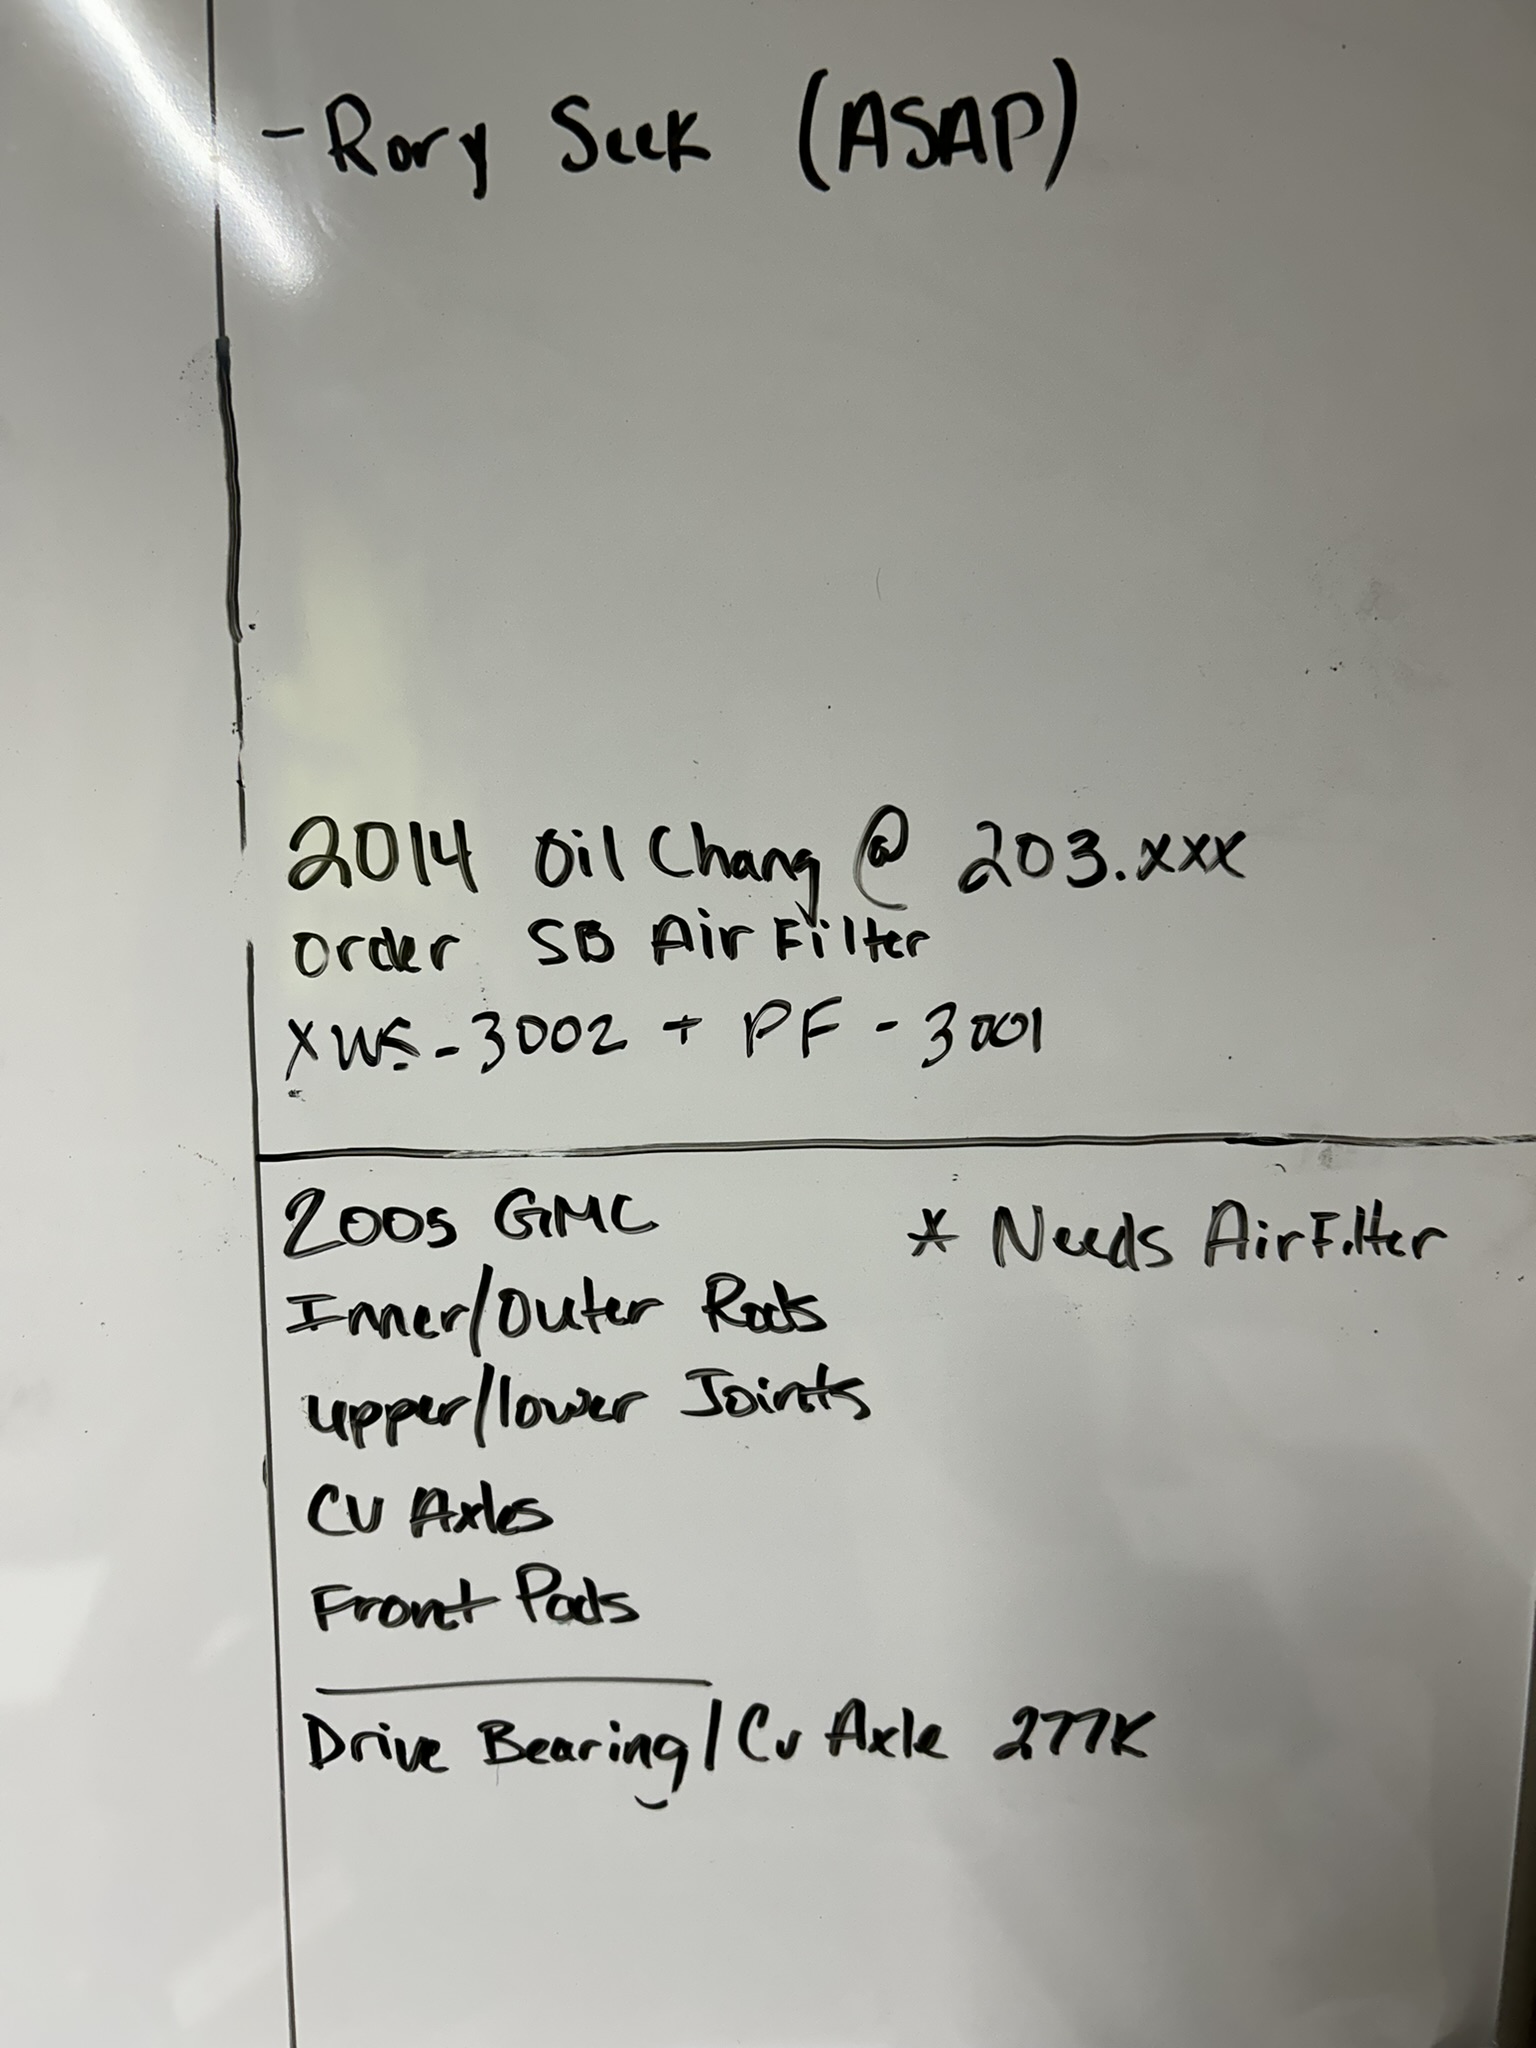 - Rory Seek (ASAP)
2014 Oil Chang @ 203.xxx
Order SB Air Filter
XWS-3002 + PF-3001
2005 GMC * Needs Air Filter
Inner/Outer Rods
upper/lower Joints
CV Axles
Front Pads
Drive Bearing/CV Axle 277K